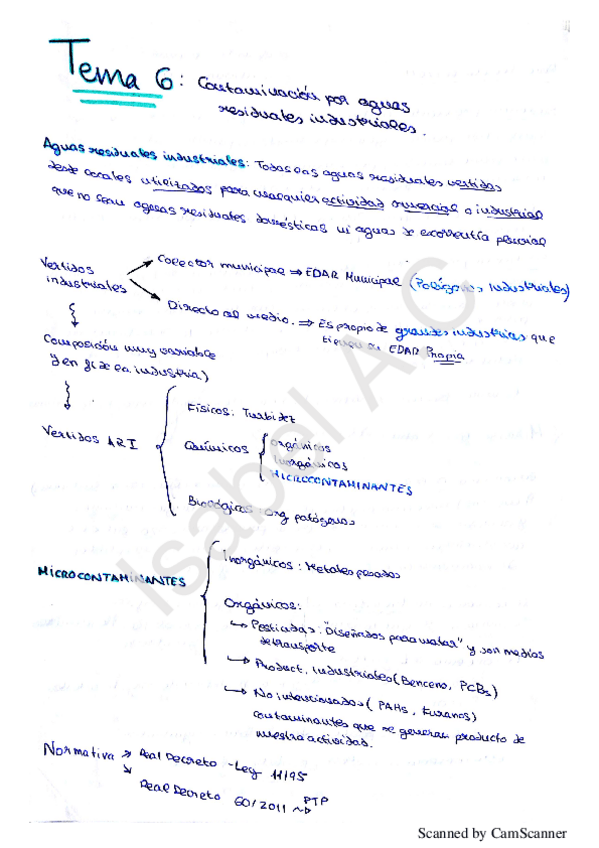 Tema 6: Contaminación por aguas
residuales industriales.
Aguas residuales industriales: Todas las aguas residuales vertidas
desde locales utilizados para cualquier actividad comercial o industrial
que no sean aguas residuales domésticas ni aguas de escorrentía pluvial
Vertidos industriales
Colector municipal ⇒ EDAR Municipal (Polígonos Industriales)
Directo al medio. ⇒ Es propio de grandes industrias que
tienen su EDAR Propia
Composición muy variable
(en f(x) de la industria)
Vertidos ARI
Físicos: Turbidez
Químicos
Orgánicos
Inorgánicos
MICROCONTAMINANTES
Biológicos: Org patógenos
MICROCONTAMINANTES
Inorgánicos: Metales pesados
Orgánicos:
↳ Pesticidas: "Diseñados para matar" y son medios
de transporte
↳ Product. Industriales (Benceno, PCBs)
↳ No intencionados (PAHs, Furanos)
contaminantes que se generan producto de
nuestra actividad.
Normativa → Real Decreto - Ley 11/95
Real Decreto 60/2011 → PTP
Isabel A.C
Scanned by CamScanner